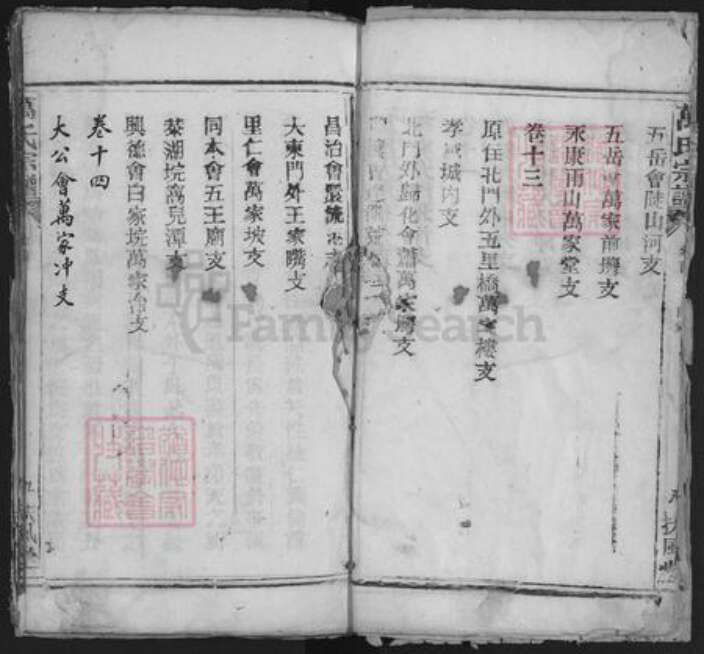 萬氏宗譜
五岳會陡山河支
五岳會萬家前塆支
永康雨山萬家堂支
卷十三
原住北門外五里橋萬家樓支
孝感城内支
北門外歸化會蕭萬家廟支
昌治會
大東門外王家嘴支
里仁會萬家坡支
同本會五王廟支
萬兒潭支
興德會白家垸萬家冶支
卷十四
大公會萬家冲支
萬氏宗譜
FamilySearch